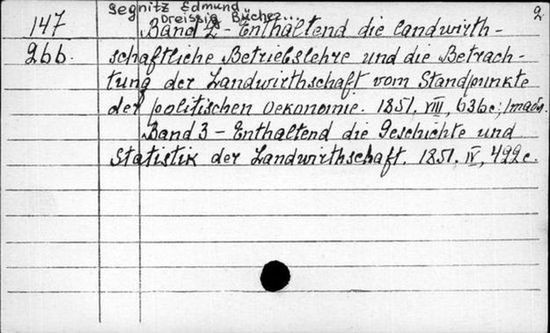 Segnitz Edmund 2
Dreissig Bücher..
147 Band 2 - Enthaltend die landwirth-
266. schaftliche Betriebslehre und die Betrach-
tung der Landwirthschaft vom Standpunkte
der politischen Oekonomie. 1851, VIII, 636 c.;
Band 3 - Enthaltend die Geschichte und
Statistik der Landwirthschaft. 1851, IV, 422 c.